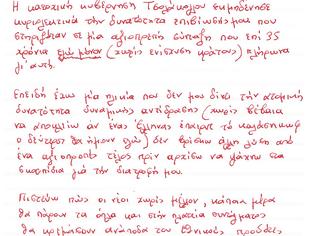 Η κατοχική κυβέρνηση Τσολάκογλου εκμηδένησε
κυριολεκτικά την δυνατότητα επιβίωσής μου που
στηριζόταν σε μια αξιοπρεπή σύνταξη που επί 35
χρόνια εγώ μόνον (χωρίς ενίσχυση κράτους) πλήρωνα
γι' αυτή.
Επειδή έχω μια ηλικία που δεν μου δίνει την ατομική
δυνατότητα δυναμικής αντίδρασης (χωρίς βέβαια
να αποκλείω αν ένας έλληνας έπαιρνε το καλάσνικωφ
ο δεύτερος θα ήμουν εγώ) δεν βρίσκω άλλη λύση από
ένα αξιοπρεπές τέλος πριν αρχίσω να ψάχνω στα
σκουπίδια για την διατροφή μου.
Πιστεύω πως οι νέοι χωρίς μέλλον, κάποια μέρα
θα πάρουν τα όπλα και στην πλατεία συντάγματος
θα κρεμάσουν ανάποδα τους εθνικούς προδότες